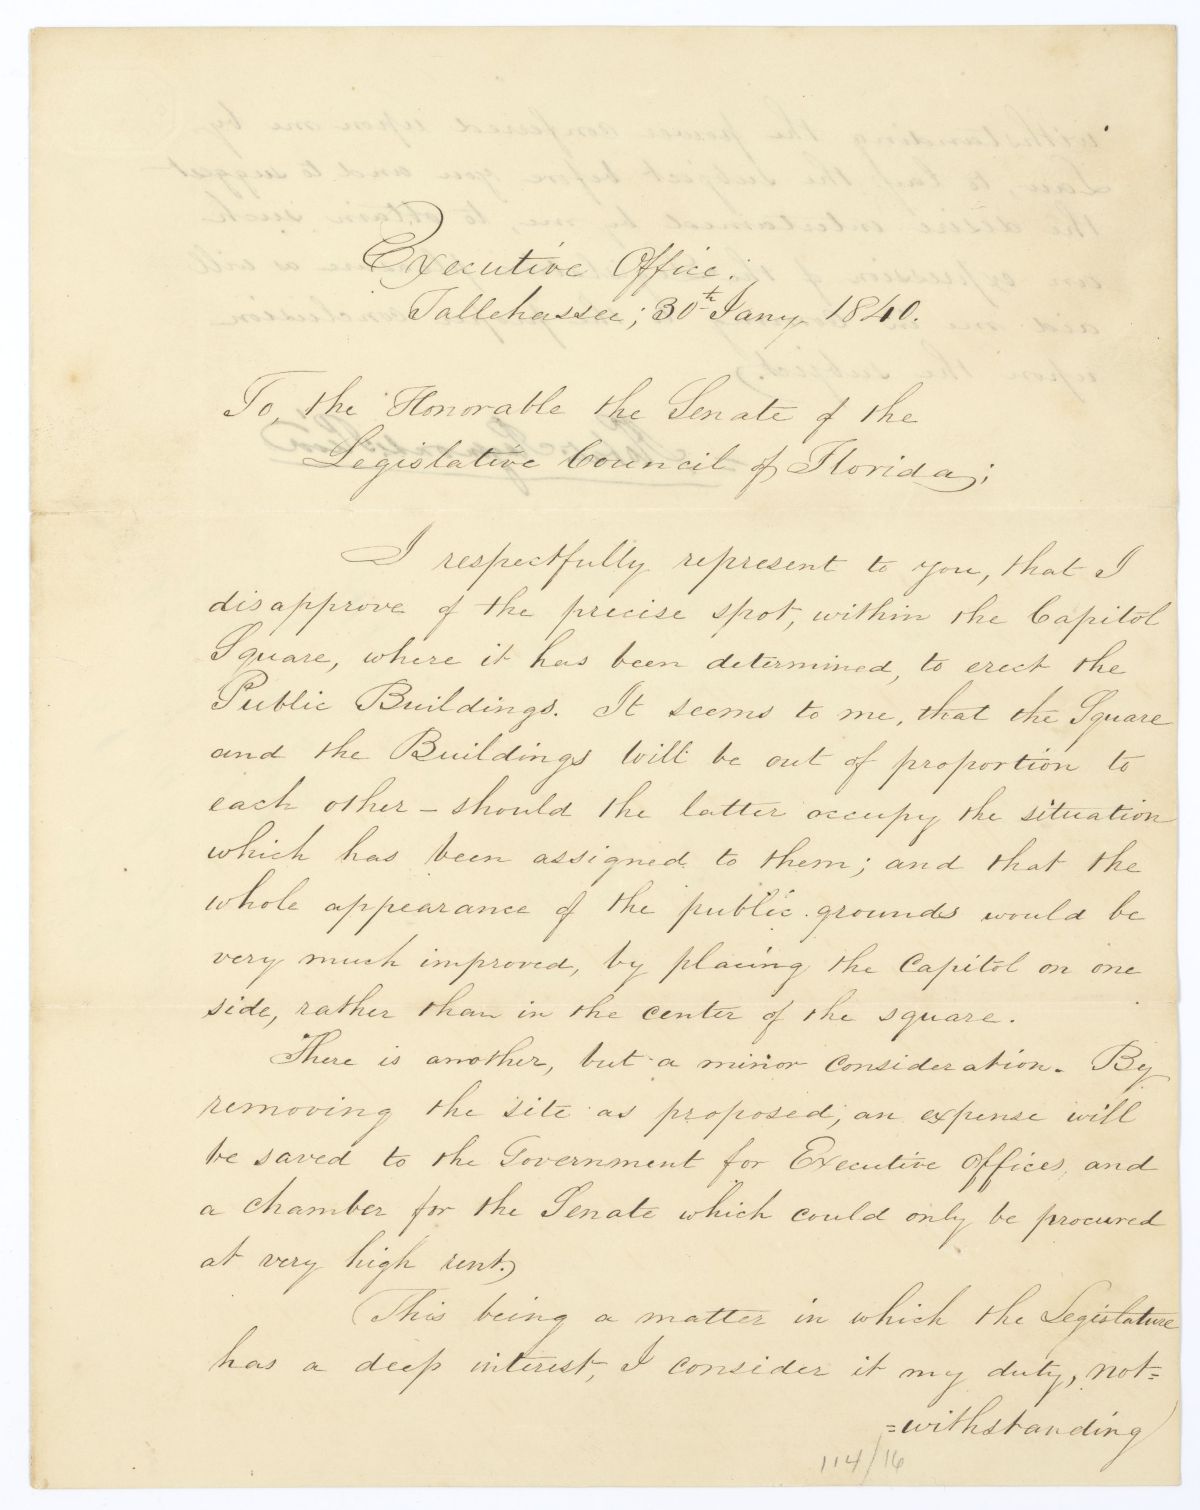 Executive Office;
Tallehassee; 30th Jany 1840.
To, the Honorable the Senate of the
Legislative Council of Florida;
I respectfully represent to you, that I
disapprove of the precise spot, within the Capitol
Square, where it has been determined, to erect the
Public Buildings. It seems to me, that the Square
and the Buildings will be out of proportion to
each other – should the latter occupy the situation
which has been assigned to them; and that the
whole appearance of the public grounds would be
very much improved, by placing the Capitol on one
side, rather than in the center of the square.
There is another, but a minor consideration. By
removing the site as proposed, an expense will
be saved to the Government for Executive Offices, and
a chamber for the Senate which could only be procured
at very high rent.
This being a matter in which the Legislature
has a deep interest, I consider it my duty, not=
=withstanding
114/16